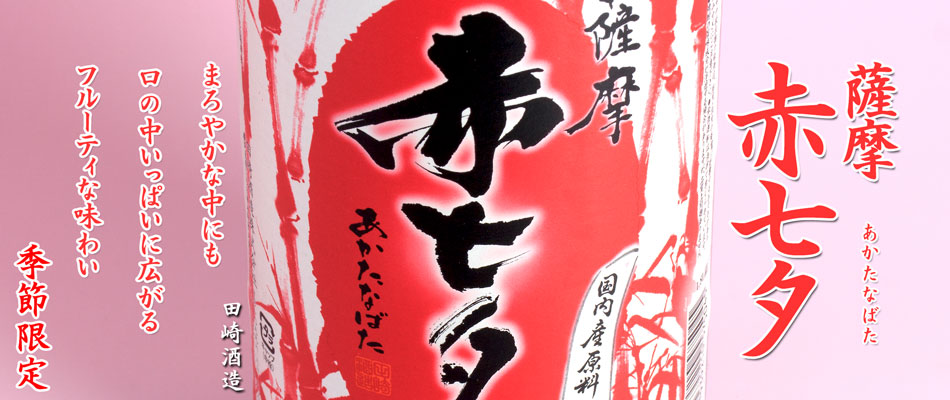 薩摩
赤七夕
あかたなばた
薩摩
赤七夕
あかたなばた
国内産原料
まろやかな中にも
口の中いっぱいに広がる
フルーティな味わい
季節限定
田崎酒造